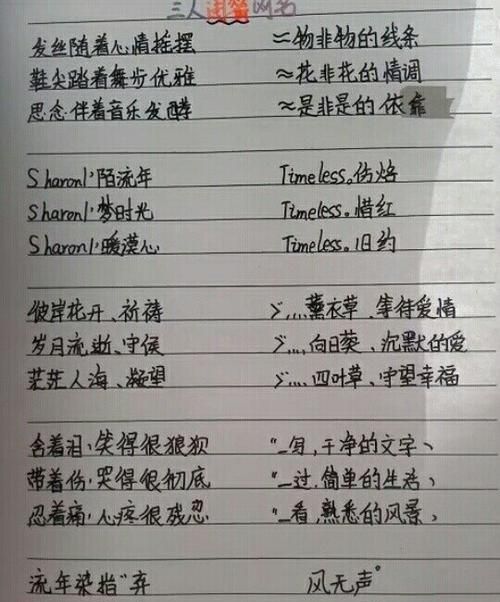 三人闺蜜网名
发丝随着心情摇摆 ≈物非物的线条
鞋尖踏着舞步优雅 ≈花非花的情调
思念伴着音乐发酵 ≈是非是的依靠
Sharonl丶陌流年 Timeless。伤焰
Sharonl丶梦时光 Timeless。惜红
Sharonl丶暖漠心 Timeless。旧约
彼岸花开、祈祷 ゞ....薰衣草、等待爱情
岁月流逝、守侯 ゞ....向日葵、沉默的爱
茫茫人海、凝望 ゞ....四叶草、守望幸福
含着泪丶笑得很狼狈 “_写,干净的文字、
带着伤丶哭得很彻底 “_过,简单的生活、
忍着痛丶心疼很残忍 “_看,熟悉的风景、
流年染指"弃 风无声°